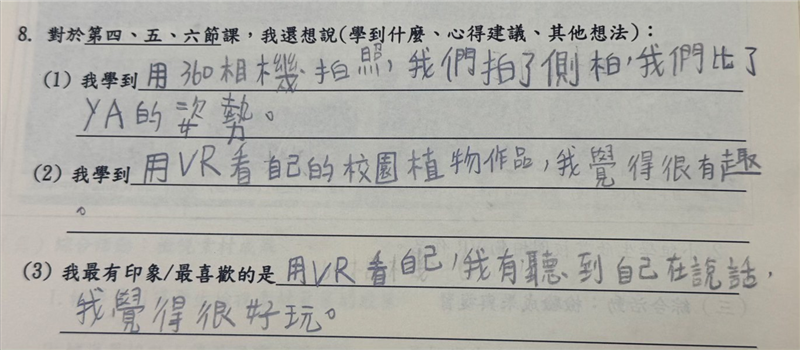 8. 對於第四、五、六節課，我還想說(學到什麼、心得建議、其他想法)：
(1) 我學到用360相機拍照，我們拍了側柏，我們比了
YA的姿勢。
(2) 我學到用VR看自己的校園植物作品，我覺得很有趣
。
(3) 我最有印象/最喜歡的是用VR看自己，我有聽到自己在說話，
我覺得很好玩。